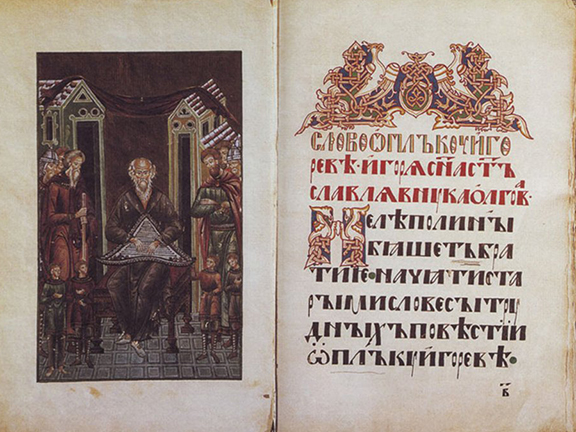 СЛОВОѠПЛЪКОУИГО
РЕВѢ·ИГОРѦСЫНАСТЪ
СЛАВЛѦВНУКАОЛГОВА·
НЕЛѢПОЛИНЫ
БѦШЕТЬБРА
ТИЕ·НАЧАТИСТА
РЫМИСЛОВЕСЫТРУ
ДНЫХЪПОВѢСТІИ
ѠПЛЪКУИГОРЕВѢ·